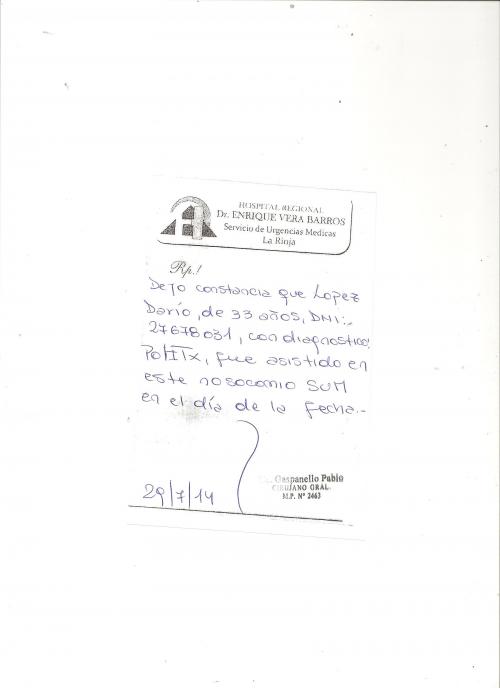 HOSPITAL REGIONAL
Dr. ENRIQUE VERA BARROS
Servicio de Urgencias Medicas
La Rioja
Rp.!
Dejo constancia que Lopez
Darío, de 33 años, DNI:-
27678031, con diagnostico:
PoliTx, fue asistido en
este nosocomio SUM
en el día de la fecha.-
29/7/14
Gaspanello Pablo
CIRUJANO GRAL.
M.P. Nº 2463